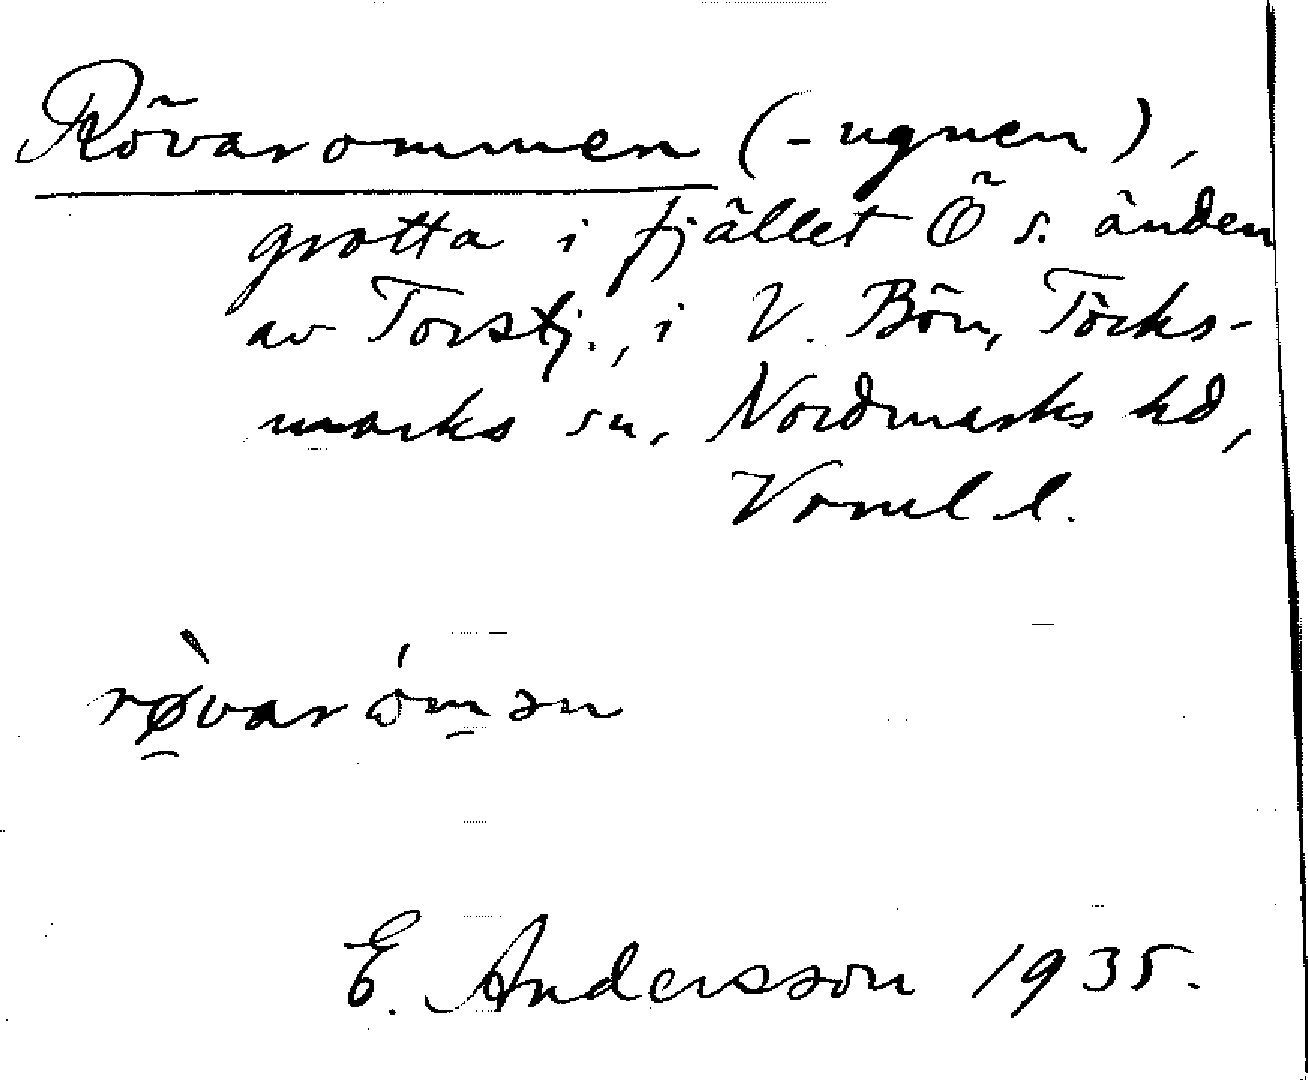 Rövarommen (-ugnen),
grotta i fjället Ö s. änden
av Torstj., i V. Bön, Töcks-
marks sn, Nordmarks hd,
Vrml. l.
rø̀varómən
E. Andersson 1935.